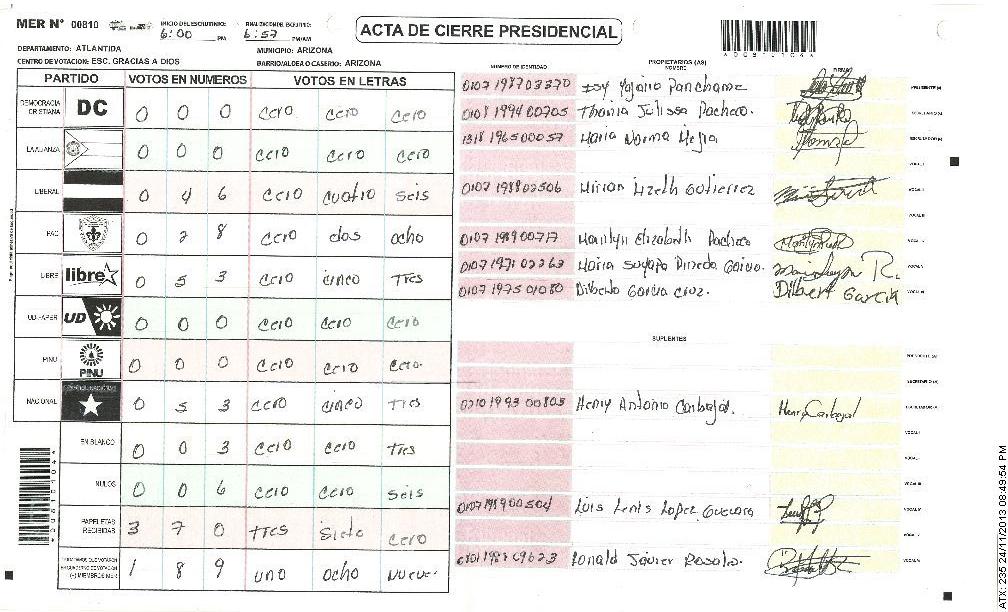 MER N° 00810
INICIO DEL ESCRUTINIO: 6:00 PM
FINALIZACION DEL ESCRUTINIO: 6:57 PM/AM
ACTA DE CIERRE PRESIDENCIAL
DEPARTAMENTO: ATLANTIDA
MUNICIPIO: ARIZONA
CENTRO DE VOTACION: ESC. GRACIAS A DIOS
BARRIO/ALDEA O CASERIO: ARIZONA
PARTIDO VOTOS EN NUMEROS VOTOS EN LETRAS
DEMOCRACIA CRISTIANA DC 0 0 0 cero cero cero
LA ALIANZA 0 0 0 cero cero cero
LIBERAL 0 4 6 cero cuatro seis
PAC 0 2 8 cero dos ocho
LIBRE libre 0 5 3 cero cinco Tres
UD-FAPER UD 0 0 0 cero cero cero
PINU PINU 0 0 0 cero cero cero
NACIONAL 0 5 3 cero cinco Tres
EN BLANCO 0 0 3 cero cero Tres
NULOS 0 0 6 cero cero seis
PAPELETAS RECIBIDAS 3 7 0 Tres Siete cero
1 8 9 uno ocho nueve
NUMERO DE IDENTIDAD
PROPIETARIOS (AS)
NOMBRE
FIRMA
PRESIDENTE (A)
0108 1994 00705 Thania Julissa Pacheco. SECRETARIO (A)
1318 1965 00057 Maria Norma Mejia ESCRUTADOR (A)
VOCAL I
Mirian Lizeth Gutierrez VOCAL II
VOCAL III
0107 1989 00717 Marilyn Elizabeth Pacheco
0107 1971 02263 Maria
0107 1975 01080 Dilberto Garcia Cruz. Dilbert Garcia
SUPLENTES
PRESIDENTE (A)
SECRETARIO (A)
0210 1993 00805 Henry Antonio Carbajal. Henry Carbajal ESCRUTADOR (A)
VOCAL I
VOCAL II
VOCAL III
0107 1989 00504 Luis Lenis Lopez Guevara VOCAL IV
VOCAL V
Ronald Javier Rosales.
ATX: 235 24/11/2013 08:49:54 PM